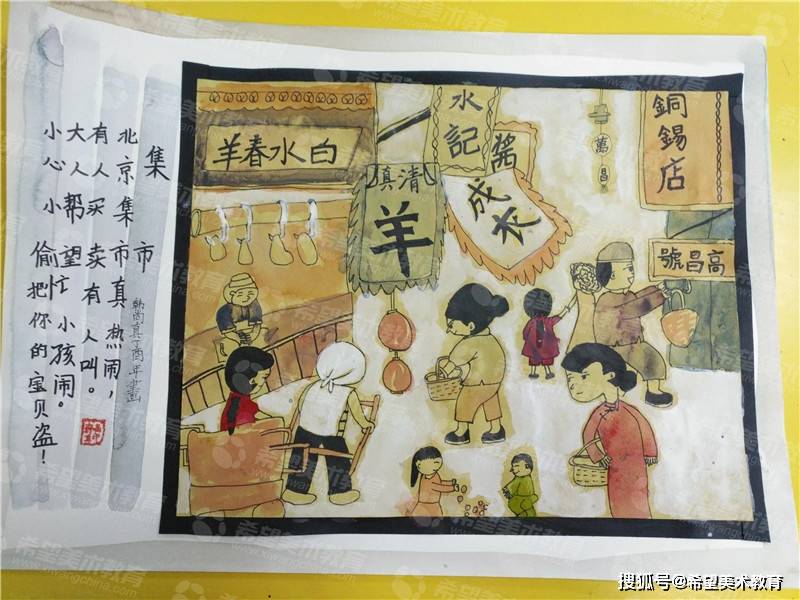 集市
北京集市真热闹，
有人买卖有人叫。
大人帮望忙小孩闹。
小心小偷把你的宝贝盗！
丁酉年画
白水春羊
清真
羊
水記
酱
成衣
萬昌
銅錫店
高昌號
希望美术教育
搜狐号@希望美术教育